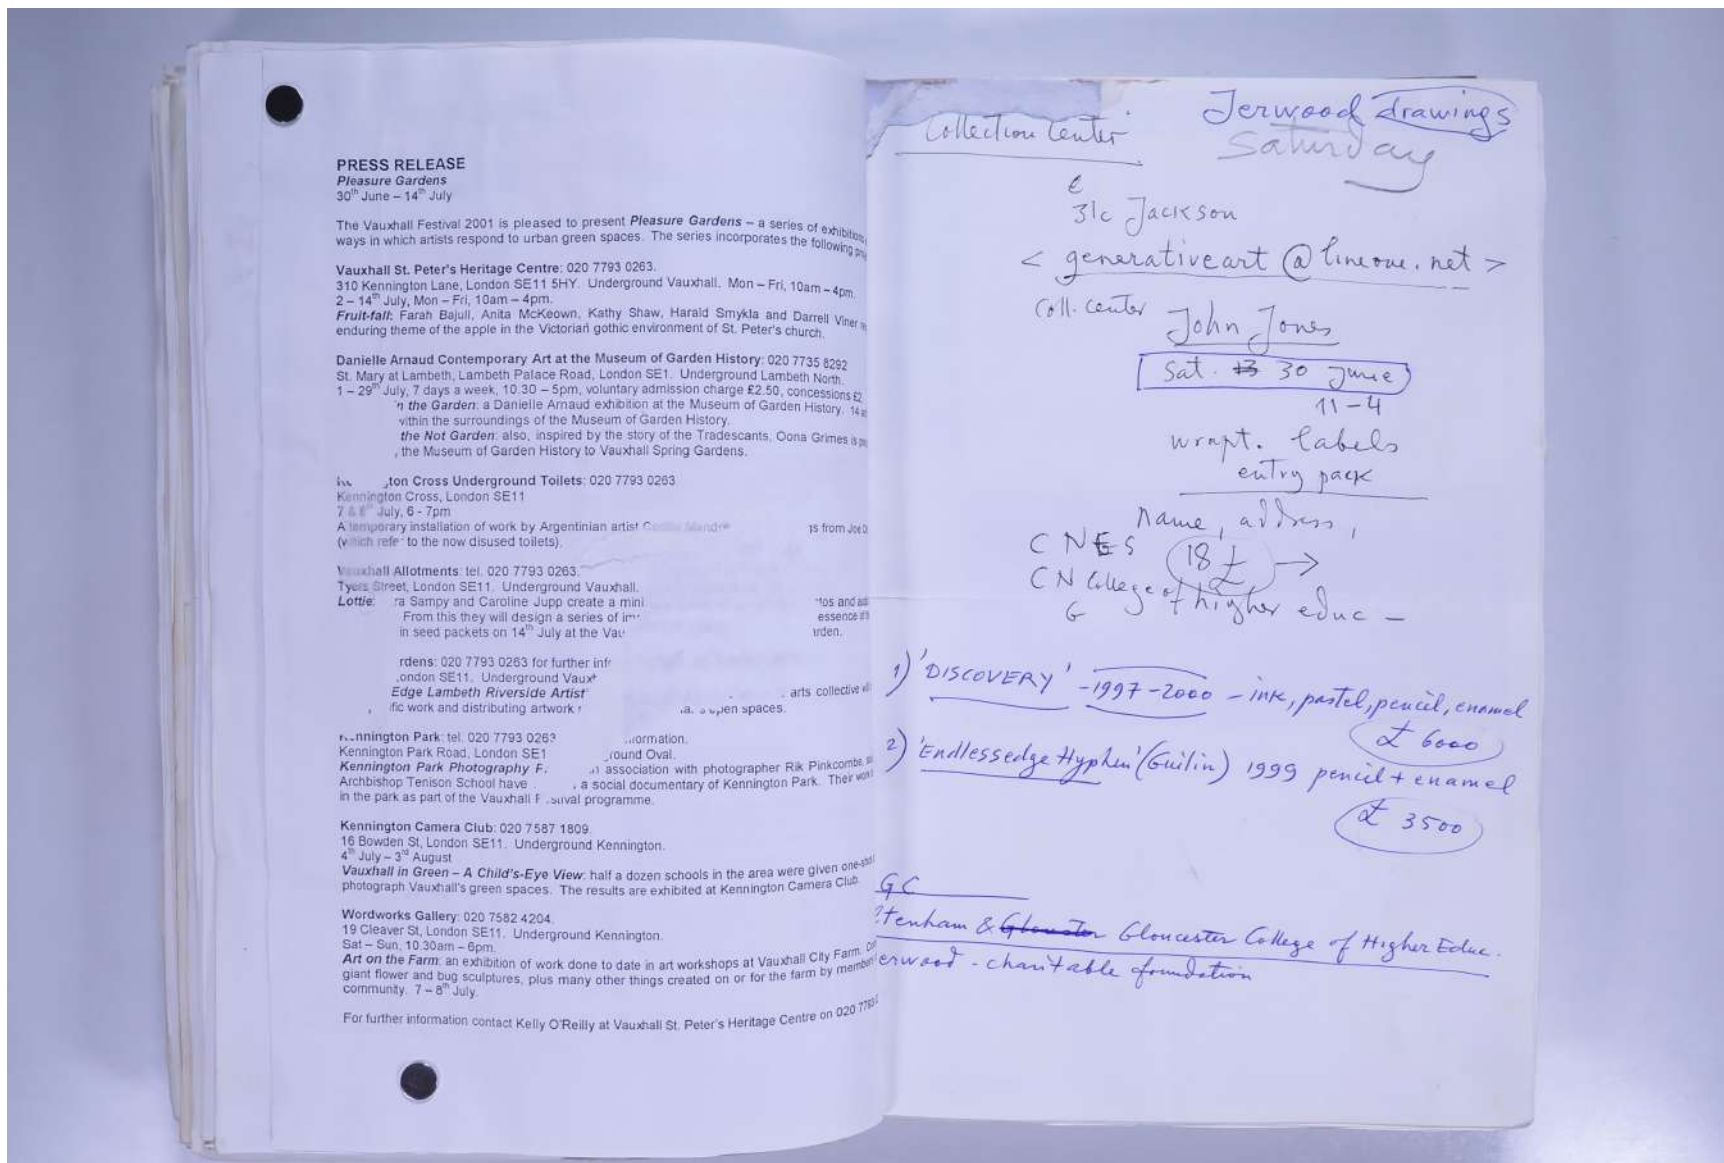 PRESS RELEASE
Pleasure Gardens
30th June – 14th July
The Vauxhall Festival 2001 is pleased to present Pleasure Gardens – a series of exhibitions
ways in which artists respond to urban green spaces. The series incorporates the following
Vauxhall St. Peter's Heritage Centre: 020 7793 0263.
310 Kennington Lane, London SE11 5HY. Underground Vauxhall. Mon – Fri, 10am – 4pm.
2 – 14th July, Mon – Fri, 10am – 4pm.
Fruit-fall: Farah Bajull, Anita McKeown, Kathy Shaw, Harald Smykla and Darrell Viner
enduring theme of the apple in the Victorian gothic environment of St. Peter's church.
Danielle Arnaud Contemporary Art at the Museum of Garden History: 020 7735 8292
St. Mary at Lambeth, Lambeth Palace Road, London SE1. Underground Lambeth North.
1 – 29th July, 7 days a week, 10.30 – 5pm, voluntary admission charge £2.50, concessions £2
in the Garden: a Danielle Arnaud exhibition at the Museum of Garden History. 14
within the surroundings of the Museum of Garden History.
the Not Garden: also, inspired by the story of the Tradescants, Oona Grimes is
, the Museum of Garden History to Vauxhall Spring Gardens.
ton Cross Underground Toilets: 020 7793 0263
Kennington Cross, London SE11
7 & 8th July, 6 - 7pm
A temporary installation of work by Argentinian artist from
(which refer to the now disused toilets).
Vauxhall Allotments: tel. 020 7793 0263.
Tyers Street, London SE11. Underground Vauxhall.
Lottie: ra Sampy and Caroline Jupp create a mini and
From this they will design a series of essence
in seed packets on 14th July at the Vau arden.
rdens: 020 7793 0263 for further inf
London SE11. Underground Vaux
Edge Lambeth Riverside Artist arts collective
ific work and distributing artwork open spaces.
Kennington Park: tel. 020 7793 0263 ormation.
Kennington Park Road, London SE1 round Oval.
Kennington Park Photography in association with photographer Rik Pinkcombe,
Archbishop Tenison School have a social documentary of Kennington Park. Their
in the park as part of the Vauxhall Festival programme.
Kennington Camera Club: 020 7587 1809.
16 Bowden St, London SE11. Underground Kennington.
4th July – 3rd August
Vauxhall in Green – A Child's-Eye View: half a dozen schools in the area were given one-shot
photograph Vauxhall's green spaces. The results are exhibited at Kennington Camera Club.
Wordworks Gallery: 020 7582 4204.
19 Cleaver St, London SE11. Underground Kennington.
Sat – Sun, 10.30am – 6pm.
Art on the Farm: an exhibition of work done to date in art workshops at Vauxhall City Farm.
giant flower and bug sculptures, plus many other things created on or for the farm by
community. 7 – 8th July.
For further information contact Kelly O'Reilly at Vauxhall St. Peter's Heritage Centre on 020
Jerwood drawings
Collection Center
Saturday
e
31c Jackson
< generativeart @ lineone.net >
coll. center
John Jones
Sat. 30 June
11-4
wrapt. labels
entry pack
name, address,
CNES 18 £ →
CN College of higher educ –
G
1) 'DISCOVERY' – 1997-2000 – ink, pastel, pencil, enamel
£ 6000
2) 'Endlessedge Hyphen' (Guilin) 1999 pencil + enamel
£ 3500
GC
ltenham & Gloucester College of Higher Educ.
erwood - charitable foundation